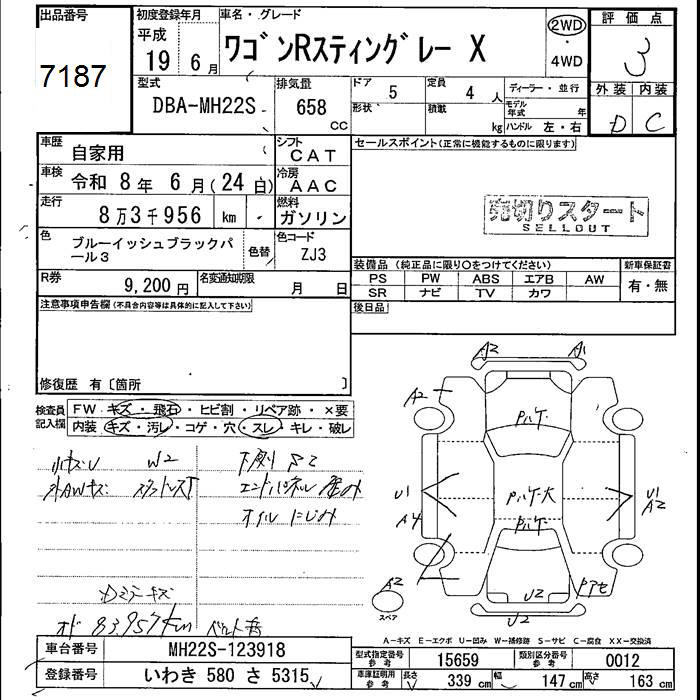 出品番号
7187
初度登録年月
平成
19 6月
車名・グレード
ワゴンRスティングレー X
2WD
・
4WD
評価点
3
外装 内装
D C
型式
DBA-MH22S
排気量
658
CC
ドア
5
形状
定員
4 人
積載
kg
ディーラー・並行
モデル年式 年
ハンドル 左・右
車歴
自家用
シフト
CAT
車検
令和 8年 6月(24日)
冷房
AAC
走行
8万3千956 km
燃料
ガソリン
色
ブルーイッシュブラックパール3
色替
色コード
ZJ3
R券
9,200円
名変通知期限
月 日
セールスポイント(正常に機能するものに限ります)
売切りスタート
SELLOUT
装備品(純正品に限り〇をつけてください)
PS PW ABS エアB AW
SR ナビ TV カワ
新車保証書
有・無
後日品
注意事項申告欄(不具合内容等は具体的に記入して下さい)
修復歴 有〔箇所 〕
検査員
記入欄
FW キズ・飛石・ヒビ割・リペア跡・×要
内装 キズ・汚レ・コゲ・穴・スレ・キレ・破レ
W2
下廻りサビ
エンドパネル歪み
オイルにじみ
Dミラーキズ
オド 83957km
A2 A1
A2
パハゲ
U1
A4
パハゲ大
U1
A2
パハゲ
A2
スペア
U2
U2
A-キズ E-エクボ U-凹み W-補修跡 S-サビ C-腐食 XX-交換済
車台番号
MH22S-123918
登録番号
いわき 580 さ 5315
型式指定番号
参考
15659
類別区分番号
参考
0012
車庫証明用
参考
長さ 339 cm
幅 147 cm
高さ 163 cm